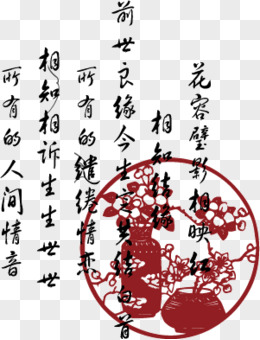 花容璧影相映红
相知结缘
前世良缘今生喜共结白首
所有的缱绻情恋
相知相诉生生世世
所有的人间情音